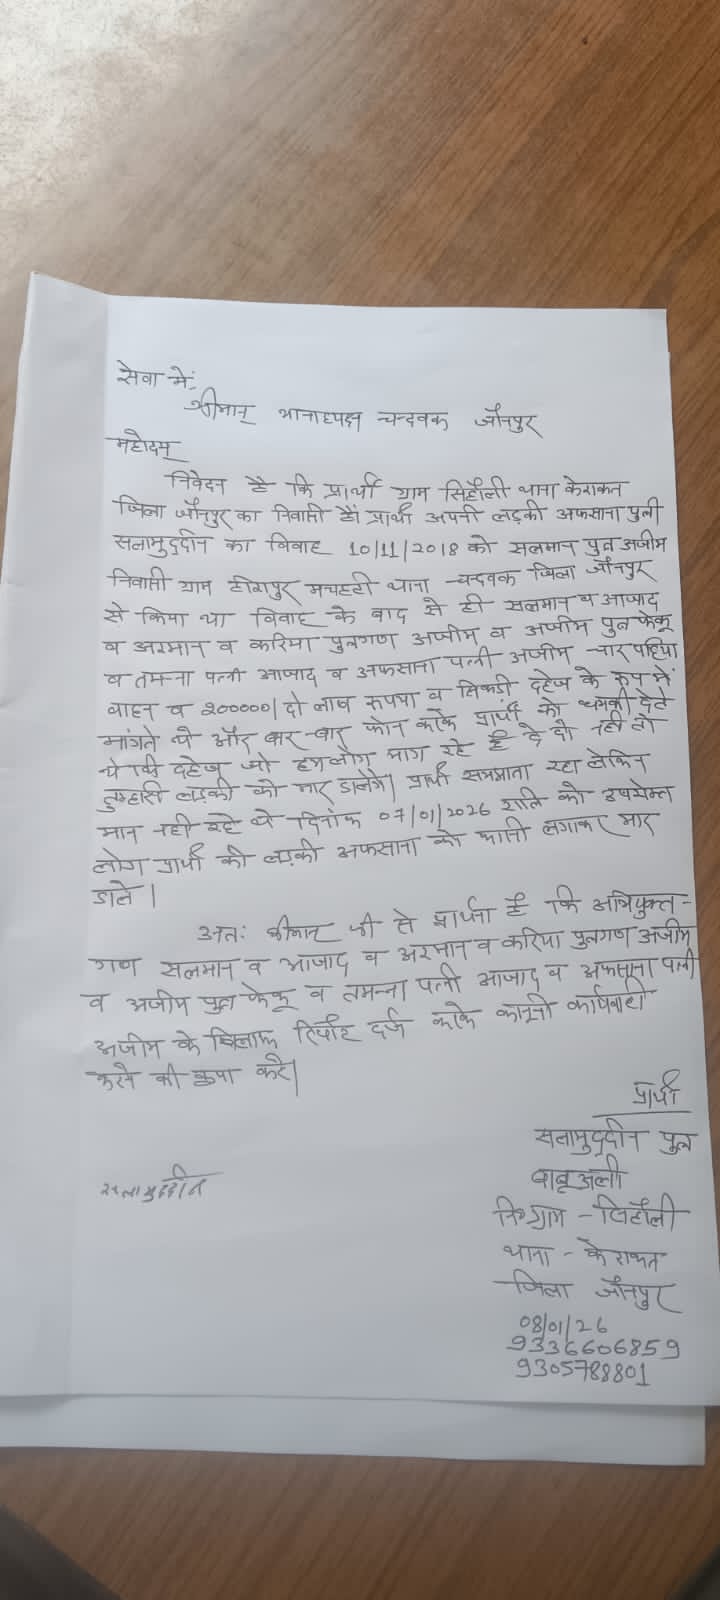 सेवा में,
श्रीमान् थानाध्यक्ष चन्दवक जौनपुर
महोदय
निवेदन है कि प्रार्थी ग्राम सिहौली थाना केराकत
जिला जौनपुर का निवासी है। प्रार्थी अपनी लड़की अफसाना पुत्री
सलामुद्दीन का विवाह 10/11/2018 को सलमान पुत्र अजीम
निवासी ग्राम हीरापुर मचहटी थाना चन्दवक जिला जौनपुर
से किया था विवाह के बाद से ही सलमान व आजाद
व अरमान व करिया पुत्रगण अजीम व अजीम पुत्र फेकू
व तमन्ना पत्नी आजाद व अफसाना पत्नी अजीम चार पहिया
वाहन व 200000/ दो लाख रूपया व सिकड़ी दहेज के रूप में
मांगते थे और बार-बार फोन करके प्रार्थी को धमकी देते
थे कि दहेज जो हमलोग माग रहे है दे दो नही तो
तुम्हारी लड़की को मार डालेगे। प्रार्थी समझाता रहा लेकिन
मान नही रहे थे दिनांक 07/01/2026 रात्रि को उपरोक्त
लोग प्रार्थी की लड़की अफसाना को फासी लगाकर मार
डाले।
अतः श्रीमान जी से प्रार्थना है कि अभियुक्त-
गण सलमान व आजाद व अरमान व करिया पुत्रगण अजीम
व अजीम पुत्र फेकू व तमन्ना पत्नी आजाद व अफसाना पत्नी
अजीम के खिलाफ रिपोर्ट दर्ज करके कानूनी कार्यवाही
करने की कृपा करे।
प्रार्थी
सलामुद्दीन पुत्र
बाबू अली
सलामुद्दीन
ग्राम - सिहौली
थाना - केराकत
जिला जौनपुर
08/01/26
9336606859
9305788801